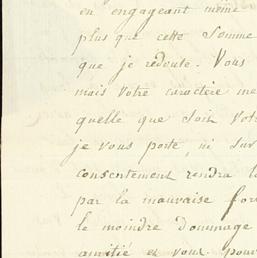 en engageant même
plus que cette somme
que je redoute. Vous
mais votre caractère me
quelle que soit votr
je vous porte, ni sur
consentement rendra
par la mauvaise for
le moindre dommage
amitié et vous pouv